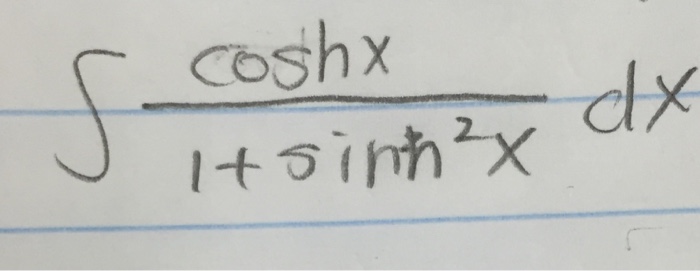 ∫ coshx / 1+sinh²x dx